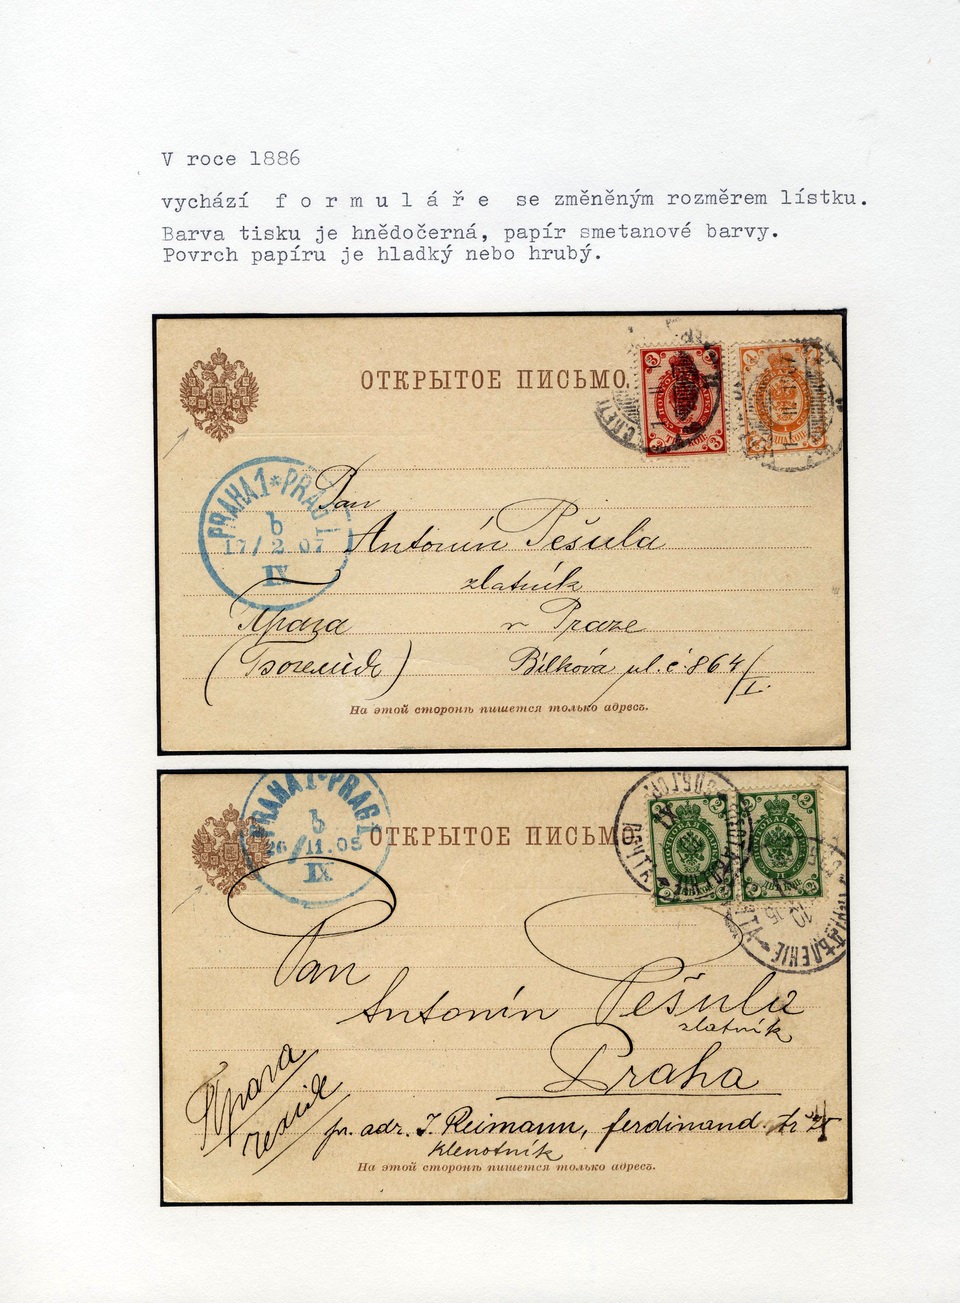 V roce 1886
vychází f o r m u l á ř e se změněným rozměrem lístku.
Barva tisku je hnědočerná, papír smetanové barvy.
Povrch papíru je hladký nebo hrubý.
ОТКРЫТОЕ ПИСЬМО.
PRAHA 1 * PRAG 1
b
17/2 07
IX
Pan
Antonín Pešula
zlatník
Прага v Praze
(Богемія) Bílková ul. č. 864/I.
На этой сторонѣ пишется только адресъ.
PRAHA 1 * PRAG 1
b
26/11.05
IX
ОТКРЫТОЕ ПИСЬМО
Pan
Antonín Pešula
zlatník
Praha
Прага
Чехія
pr. adr. J. Reimann, ferdinand. tř
klenotník
На этой сторонѣ пишется только адресъ.